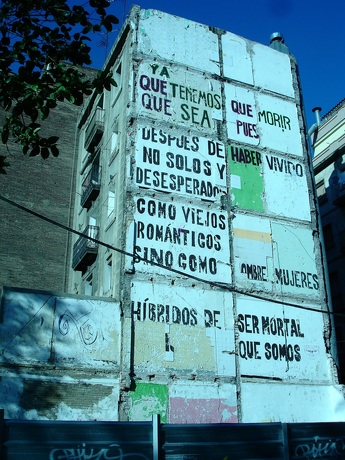 YA
QUE TENEMOS QUE MORIR
QUE SEA PUES
DESPUÉS DE HABER VIVIDO
NO SOLOS Y
DESESPERADOS
COMO VIEJOS
ROMÁNTICOS
SINO COMO OMBRE MUJERES
HÍBRIDOS DE SER MORTAL
QUE SOMOS